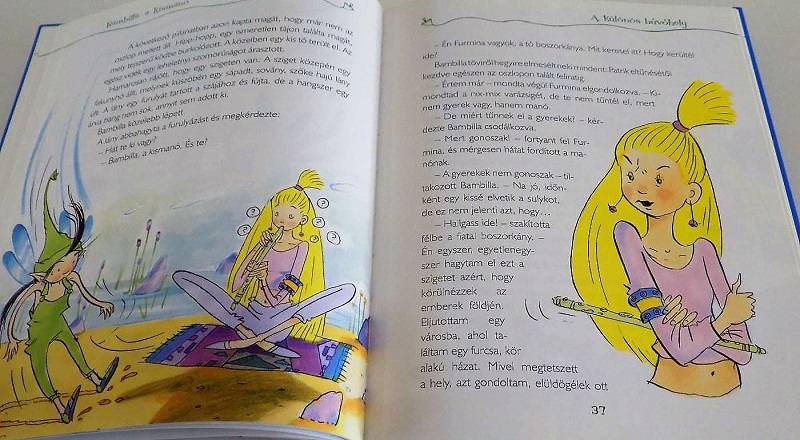 Bambilla, a kismanó
A következő pillanatban azon kapta magát, hogy már nem az
oszlop mellett áll. Hipp-hopp, egy ismeretlen tájon találta magát,
mely tejszerű ködbe burkolózott. A közelben egy kis tó terült el. Az
egész vidék egy lehelletnyi szomorúságot árasztott.
Hamarosan rájött, hogy egy szigeten van. A sziget közepén egy
fakunyhó állt, melynek küszöbén egy sápadt, sovány, szőke hajú lány
ült. A lány egy furulyát tartott a szájához és fújta, de a hangszer egy
árva hang nem sok, annyit sem adott ki.
Bambilla közelebb lépett.
A lány abbahagyta a furulyázást és megkérdezte:
– Hát te ki vagy?
– Bambilla, a kismanó. És te?
? ? ? ?
A különös búvóhely
– Én Furmina vagyok, a tó boszorkánya. Mit keresel itt? Hogy kerültél
ide?
Bambilla töviről hegyire elmesélt neki mindent: Patrik eltűnésétől
kezdve egészen az oszlopon talált feliratig.
– Értem már – mondta végül Furmina elgondolkozva. – Ki-
mondtad a nix-mix varázsigét, de te nem tűntél el, mert
nem gyerek vagy, hanem manó.
– De miért tűnnek el a gyerekek? – kér-
dezte Bambilla csodálkozva.
– Mert gonoszak! – fortyant fel Fur-
mina, és mérgesen hátat fordított a ma-
nónak.
– A gyerekek nem gonoszak – til-
takozott Bambilla. – Na jó, időn-
ként egy kissé elvetik a sulykot,
de ez nem jelenti azt, hogy…
– Hallgass ide! – szakította
félbe a fiatal boszorkány. –
Én egyszer, egyetlenegy-
szer hagytam el ezt a
szigetet azért, hogy
körülnézzek az
emberek földjén.
Eljutottam egy
városba, ahol ta-
láltam egy furcsa, kör
alakú házat. Mivel megtetszett
a hely, azt gondoltam, elüldögélek ott
37